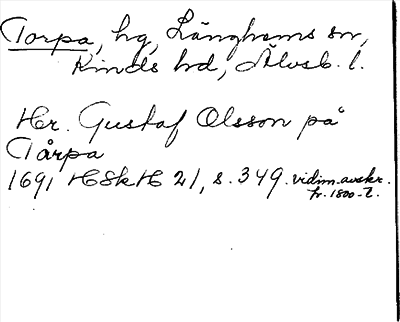 Torpa, hg, Länghems sn,
Kinds hd, Älvsb. l.
Hr. Gustaf Olsson på
Tårpa
1691 HSkH 21, s. 349. vidim. avskr.
fr. 1800-t.